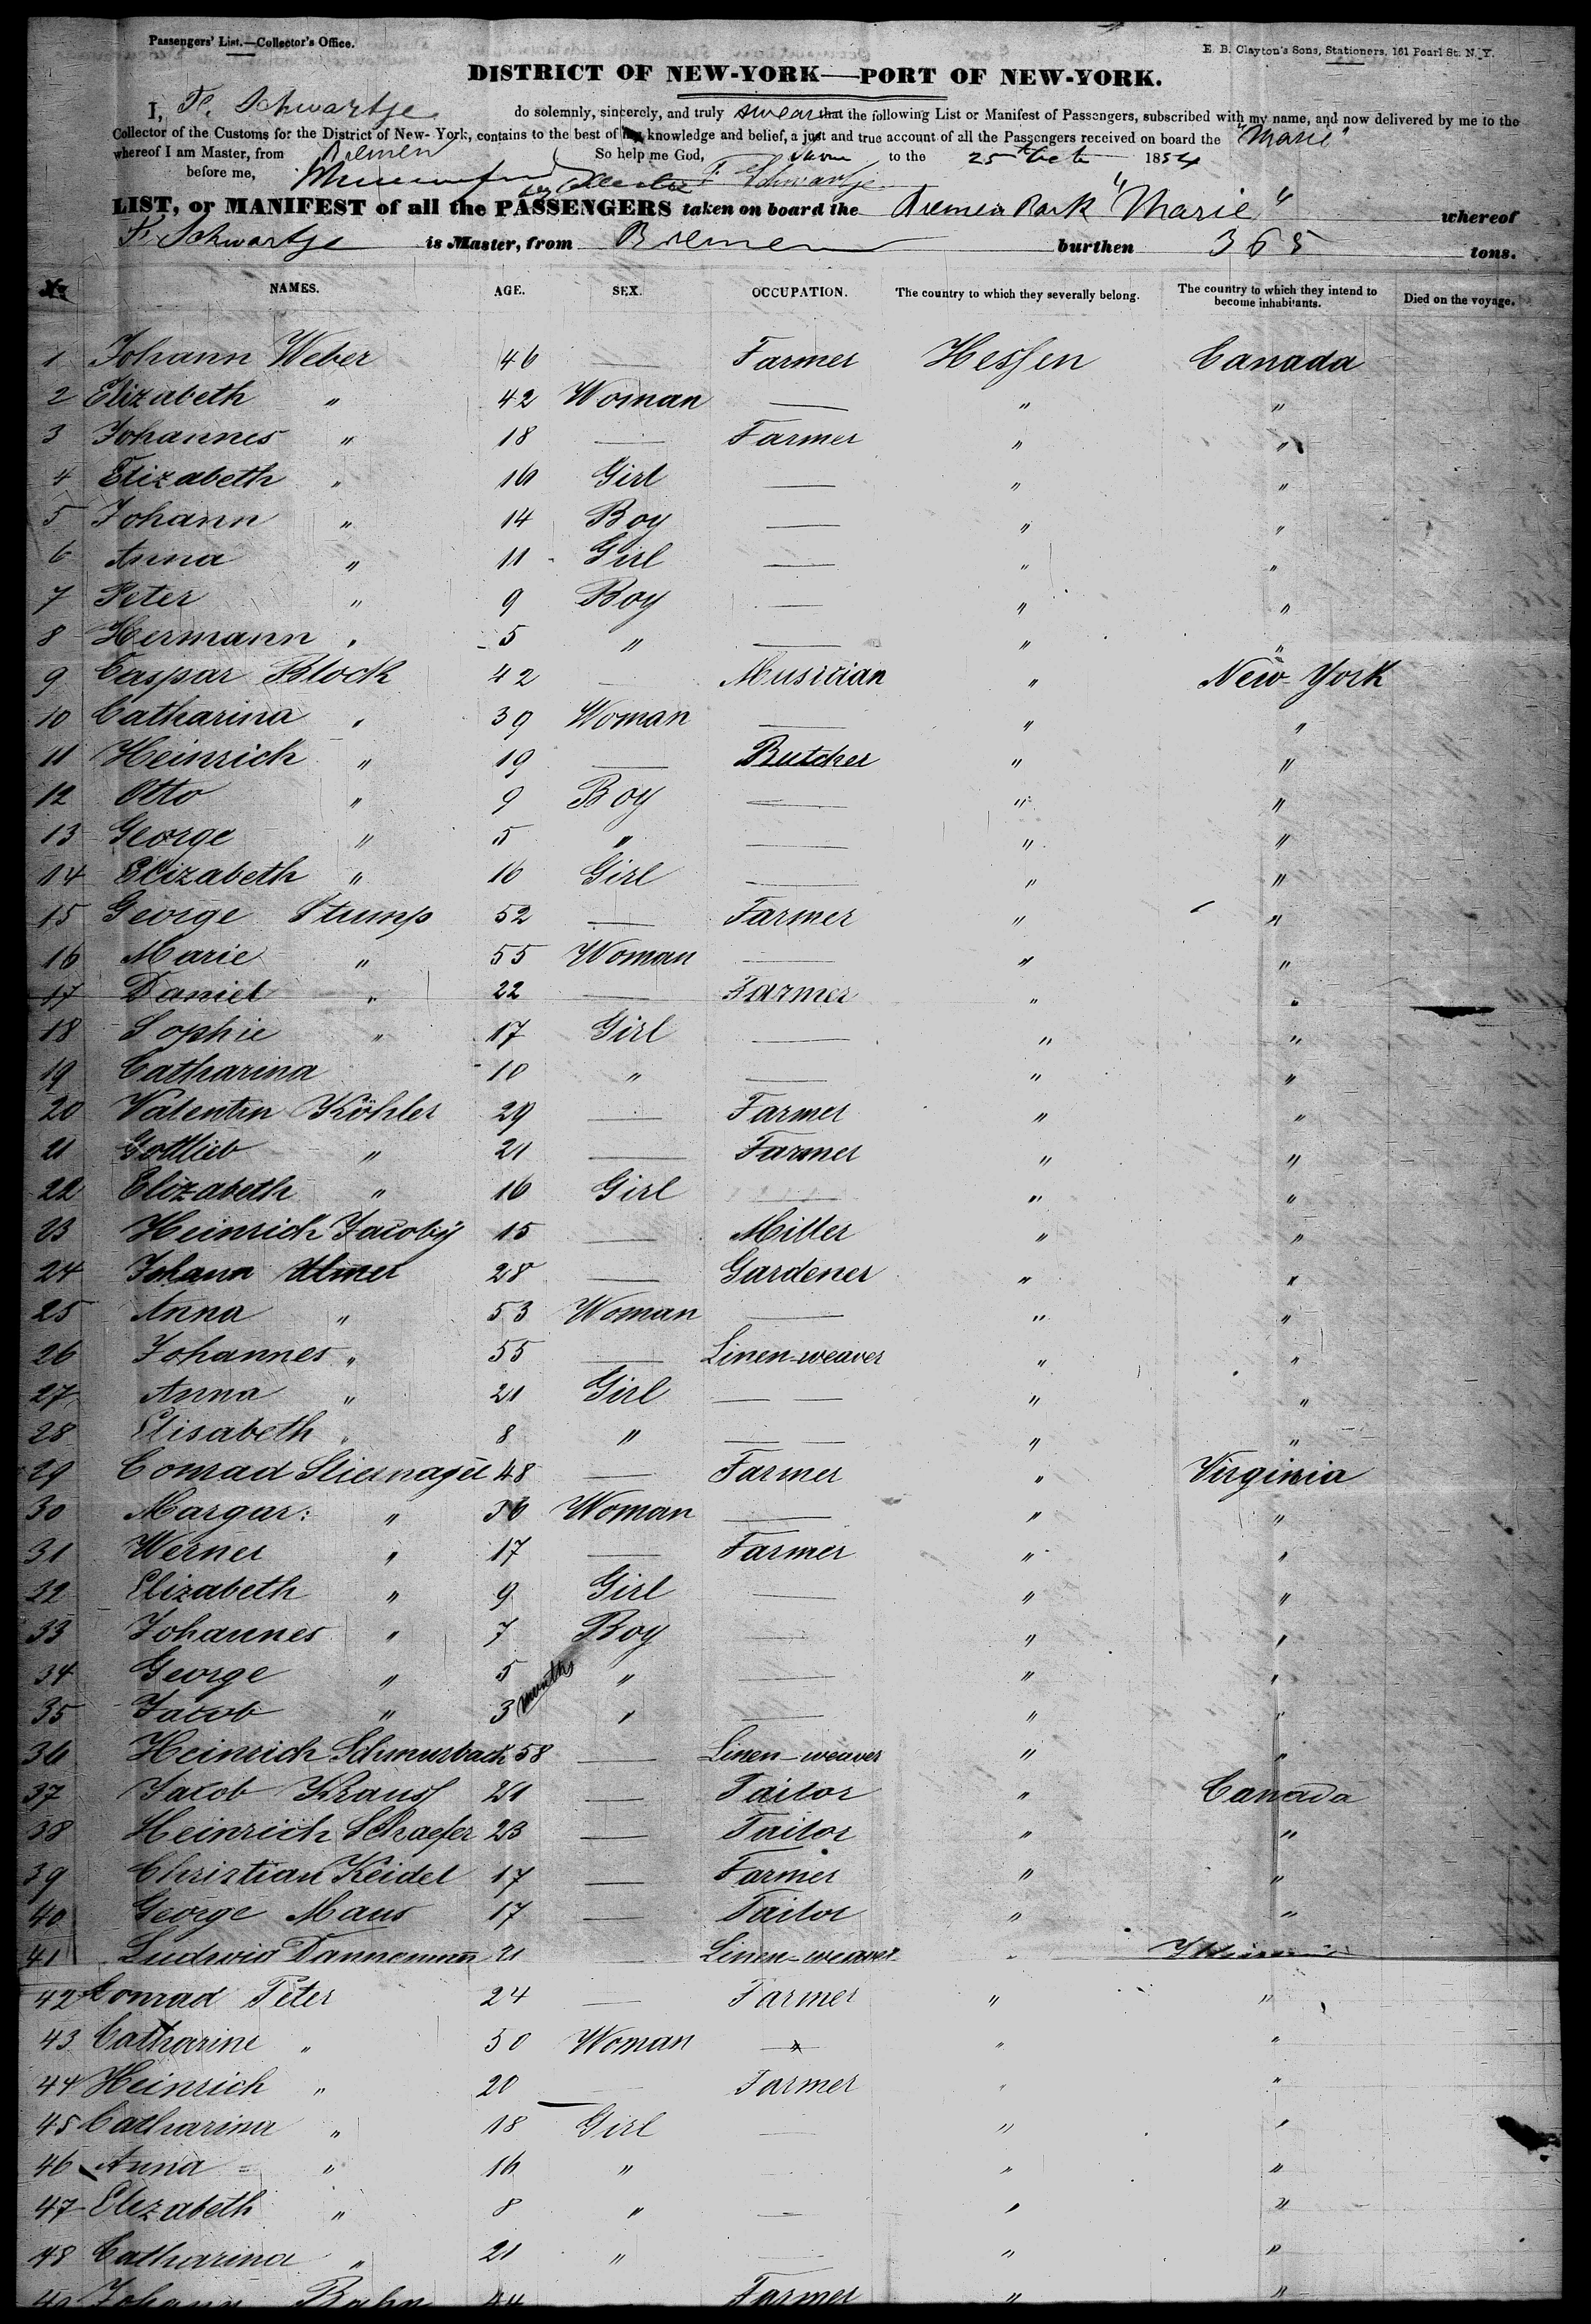 Passengers' List.—Collector's Office.
E. B. Clayton's Sons, Stationers, 161 Pearl St. N. Y.
DISTRICT OF NEW-YORK—PORT OF NEW-YORK.
I, Fr. Schwartje do solemnly, sincerely, and truly swear that the following List or Manifest of Passengers, subscribed with my name, and now delivered by me to the
Collector of the Customs for the District of New-York, contains to the best of my knowledge and belief, a just and true account of all the Passengers received on board the "Marie"
whereof I am Master, from Bremen So help me God, Sworn to the 25th Oct 1854
before me, F Schwartje
LIST, or MANIFEST of all the PASSENGERS taken on board the Bremen Bark "Marie" whereof
Fr. Schwartje is Master, from Bremen burthen 365 tons.
No NAMES. AGE. SEX. OCCUPATION. The country to which they severally belong. The country to which they intend to become inhabitants. Died on the voyage.
1 Johann Weber 46 — Farmer Hessen Canada
2 Elizabeth " 42 Woman — " "
3 Johannes " 18 — Farmer " "
4 Elizabeth " 16 Girl — " "
5 Johann " 14 Boy — " "
6 Anna " 11 Girl — " "
7 Peter " 9 Boy — " "
8 Hermann " 5 " — " "
9 Caspar Block 42 — Musician " New-York
10 Catharina " 39 Woman — " "
11 Heinrich " 19 — Butcher " "
12 Otto " 9 Boy — " "
13 George " 5 " — " "
14 Elizabeth " 16 Girl — " "
15 George Stump 52 — Farmer " "
16 Marie " 55 Woman — " "
17 Daniel " 22 — Farmer " "
18 Sophie " 17 Girl — " "
19 Catharina 10 " — " "
20 Valentin Köhler 29 — Farmer " "
21 Gottlieb " 21 — Farmer " "
22 Elizabeth " 16 Girl — " "
23 Heinrich Jacoby 15 — Miller " "
24 Johann Ulmer 28 — Gardener " "
25 Anna " 53 Woman — " "
26 Johannes " 55 — Linen-weaver " "
27 Anna " 21 Girl — — " "
28 Elisabeth " 8 " — — " "
29 Conrad Stiernagel 48 — Farmer " Virginia
30 Margar: " 36 Woman — " "
31 Werner " 17 — Farmer " "
32 Elizabeth " 9 Girl — " "
33 Johannes " 7 Boy — " "
34 George " 5 " — " "
35 Jacob " 3 months " — " "
36 Heinrich 58 — Linen-weaver " "
37 Jacob Krauss 21 — Tailor " Canada
38 Heinrich Schaefer 23 — Tailor " "
39 Christian Keidel 17 — Farmer " "
40 George Maus 17 — Tailor " "
41 Ludwig Dannemann 21 — Linen-weaver "
42 Conrad Peter 24 — Farmer " "
43 Catharine " 50 Woman — " "
44 Heinrich " 20 — Farmer " "
45 Catharina " 18 Girl — " "
46 Anna " 16 " " "
47 Elizabeth " 8 " — " "
48 Catharina " 21 " — " "
49 Johann Bahn 44 Farmer " "